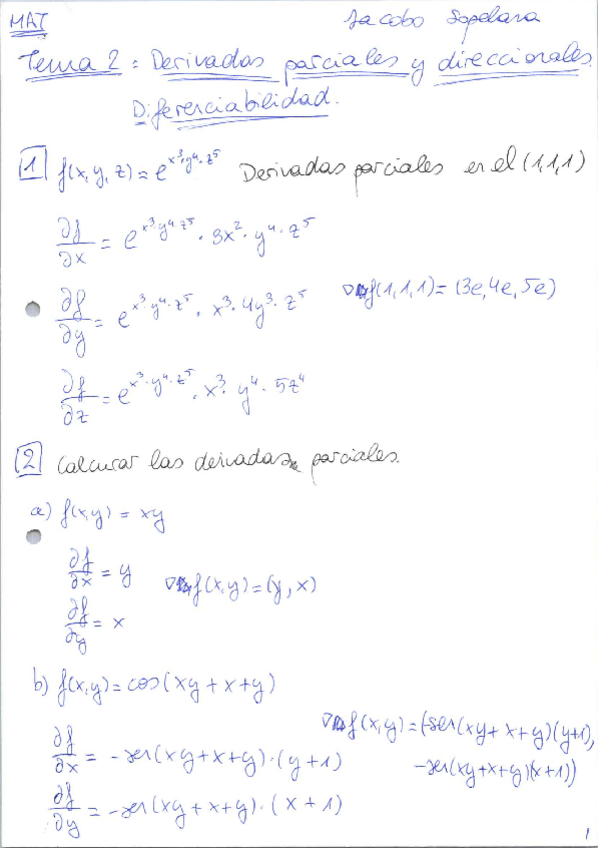 MAT Jacobo Sopelana
Tema 2: Derivadas parciales y direccionales.
Diferenciabilidad.
1 f(x,y,z) = e^{x³·y⁴·z⁵} Derivadas parciales en el (1,1,1)
∂f/∂x = e^{x³·y⁴·z⁵} · 3x² · y⁴ · z⁵
∂f/∂y = e^{x³·y⁴·z⁵} · x³ · 4y³ · z⁵ ∇f(1,1,1) = (3e, 4e, 5e)
∂f/∂z = e^{x³·y⁴·z⁵} · x³ · y⁴ · 5z⁴
2 Calcular las derivadas parciales.
a) f(x,y) = xy
∂f/∂x = y ∇f(x,y) = (y, x)
∂f/∂y = x
b) f(x,y) = cos(xy + x + y)
∇f(x,y) = (-sen(xy + x + y)(y+1),
∂f/∂x = -sen(xy + x + y) · (y+1) -sen(xy + x + y)(x+1))
∂f/∂y = -sen(xy + x + y) · (x+1)
1